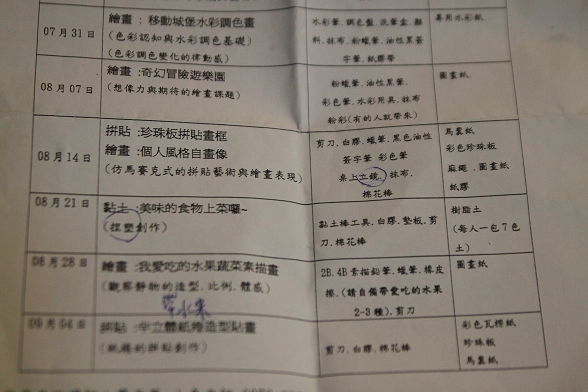 繪畫：移動城堡水彩調色畫
水彩筆、調色盤、洗筆盒、顏
專用水彩紙
07月31日
(色彩認知與水彩調色基礎)
料、抹布、粉蠟筆、油性黑簽
(色彩調色變化的律動感)
字筆、紙膠帶
繪畫：奇幻冒險遊樂園
粉蠟筆、油性黑筆、
圖畫紙
08月07日
(想像力與期待的繪畫課題)
彩色筆、水彩用具、抹布
粉彩(有的人就帶來)
拼貼：珍珠板拼貼畫框
剪刀、白膠、蠟筆、黑色油性
馬糞紙
08月14日
繪畫：個人風格自畫像
簽字筆 彩色筆
彩色珍珠板
(仿馬賽克式的拼貼藝術與繪畫表現)
桌上立鏡、抹布、
麻繩、圖畫紙
棉花棒
紙膠
08月21日
黏土：美味的食物上菜囉~
黏土棒工具、白膠、墊板、剪
樹脂土
(捏塑創作)
刀、棉花棒
(每人一包7色
土)
08月28日
繪畫：我愛吃的水果蔬菜素描畫
2B.4B素描鉛筆、蠟筆、橡皮
圖畫紙
(觀察靜物的造型、比例、體感)
擦、(請自備帶愛吃的水果
2-3種)、剪刀
帶水果
09月04日
拼貼：半立體紙捲造型貼畫
剪刀、白膠、棉花棒
彩色瓦楞紙
(紙捲的拼貼創作)
珍珠板
馬糞紙